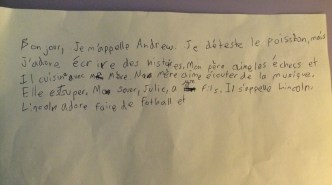 Bonjour, Je m'appelle Andrew. Je déteste le poission, mais
J'adore écrire des histoires. Mon père aime les échecs et
Il cuisine avec ma mère. Ma mère aime écouter de la musique.
Elle est super. Ma soeur, Julie, a un fils. Il s'appelle Lincoln.
Lincoln adore faire de fotball et